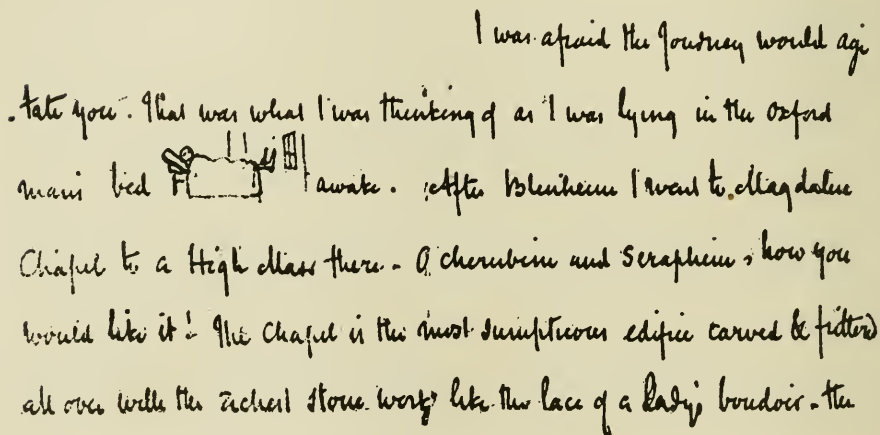 I was afraid the Journey would agi
tate you. That was what I was thinking of as I was lying in the Oxford
man's bed awake. After Blenheim I went to Magdalene
Chapel to a High Mass there. O cherubim and Seraphim, how you
would like it! The Chapel is the most sumptuous edifice carved & fitted
all over with the richest stone work like the lace of a Lady's boudoir. the